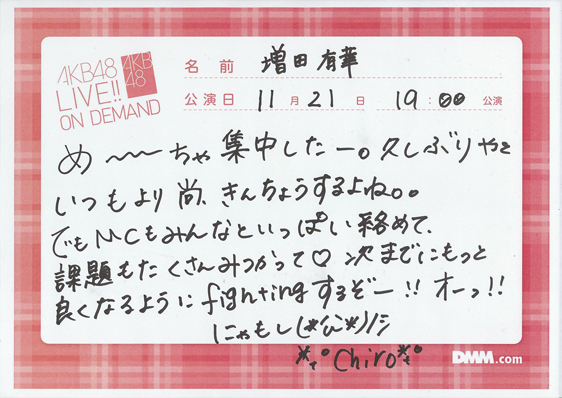 AKB48
LIVE!!
ON DEMAND
AKB
48
名前 増田有華
公演日 11月21日 19:00公演
め〜〜ちゃ集中したー。久しぶりやと
いつもより尚、きんちょうするよね。。
でもMCもみんなといっぱい絡めて、
課題もたくさんみつかって♡ 次までにもっと
良くなるようにfightingするぞー!! オーっ!!
にゃもし(*'ω'*)/彡
*。Chiro*。
DMM.com